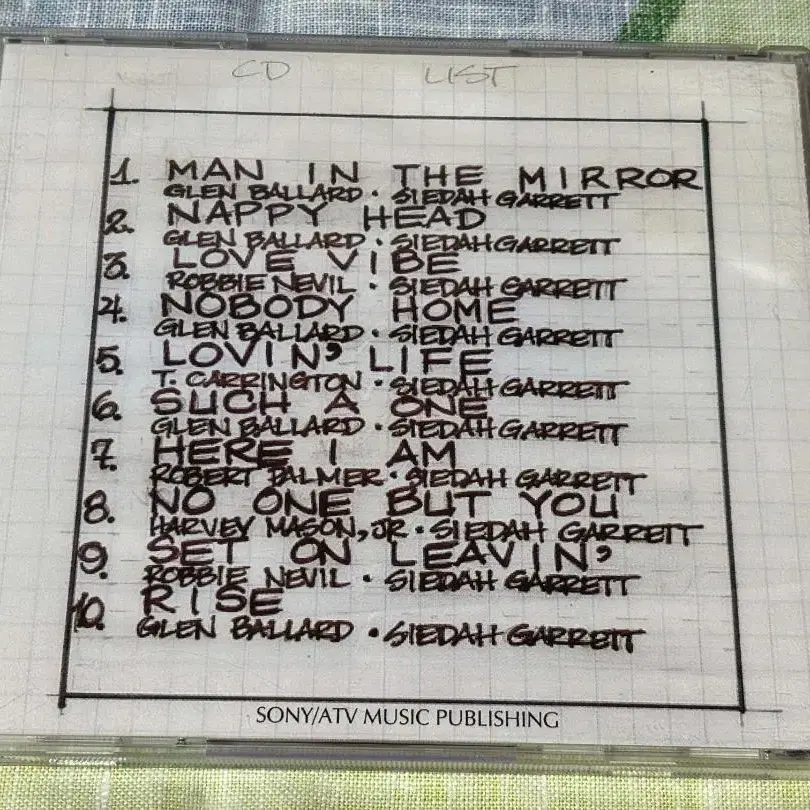 CD LIST
1. MAN IN THE MIRROR
GLEN BALLARD • SIEDAH GARRETT
2. NAPPY HEAD
GLEN BALLARD • SIEDAH GARRETT
3. LOVE VIBE
ROBBIE NEVIL • SIEDAH GARRETT
4. NOBODY HOME
GLEN BALLARD • SIEDAH GARRETT
5. LOVIN' LIFE
T. CARRINGTON • SIEDAH GARRETT
6. SUCH A ONE
GLEN BALLARD • SIEDAH GARRETT
7. HERE I AM
ROBERT PALMER • SIEDAH GARRETT
8. NO ONE BUT YOU
HARVEY MASON, JR • SIEDAH GARRETT
9. SET ON LEAVIN'
ROBBIE NEVIL • SIEDAH GARRETT
10. RISE
GLEN BALLARD • SIEDAH GARRETT
SONY/ATV MUSIC PUBLISHING